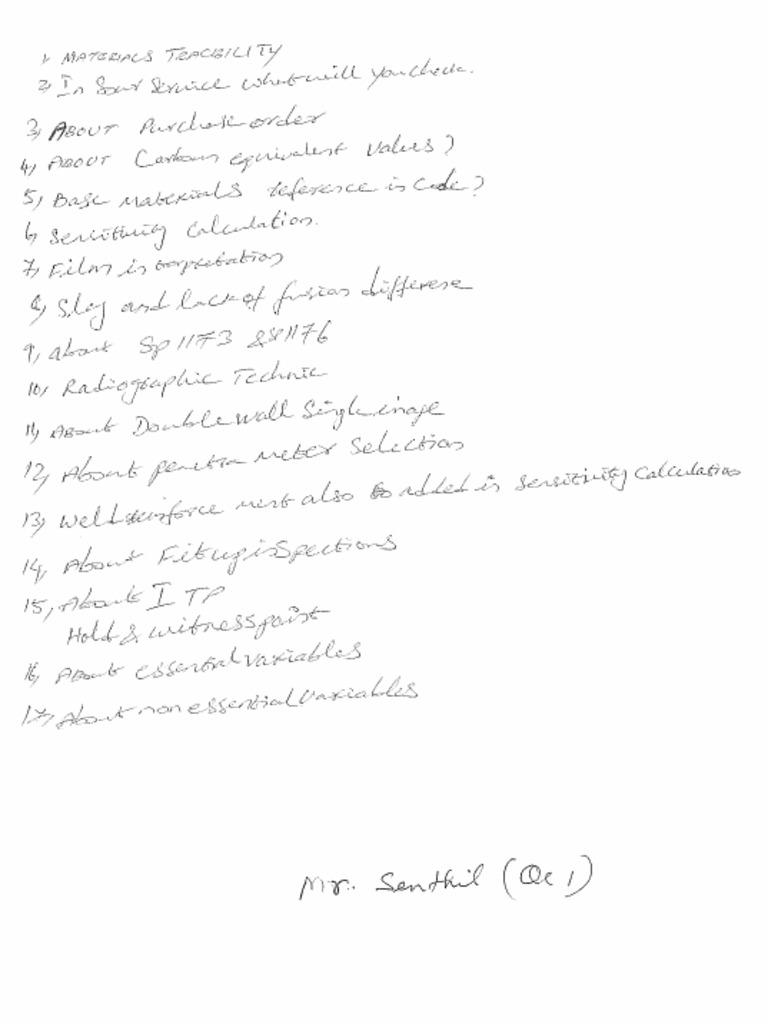 1, MATERIALS TRACBILITY
2, In Sour Service what will you check.
3, ABOUT Purchase order
4, ABOUT Carbon equivalent values?
5, Base materials reference in code?
6, Sensitivity calculation.
7, Film interpretation
8, Slag and lack of fusion differese
9, about Sp 1173 & SP 1176
10, Radiographic Technic
11, About Double wall Single image
12, About penetra meter selection
13, Weld reinforce ment also to added in sensitivity calculation
14, About Fitup inspections
15, About ITP
Hold & witness point
16, About essential variables
17, About non essential variables
Mr. Senthil (Qc 1)